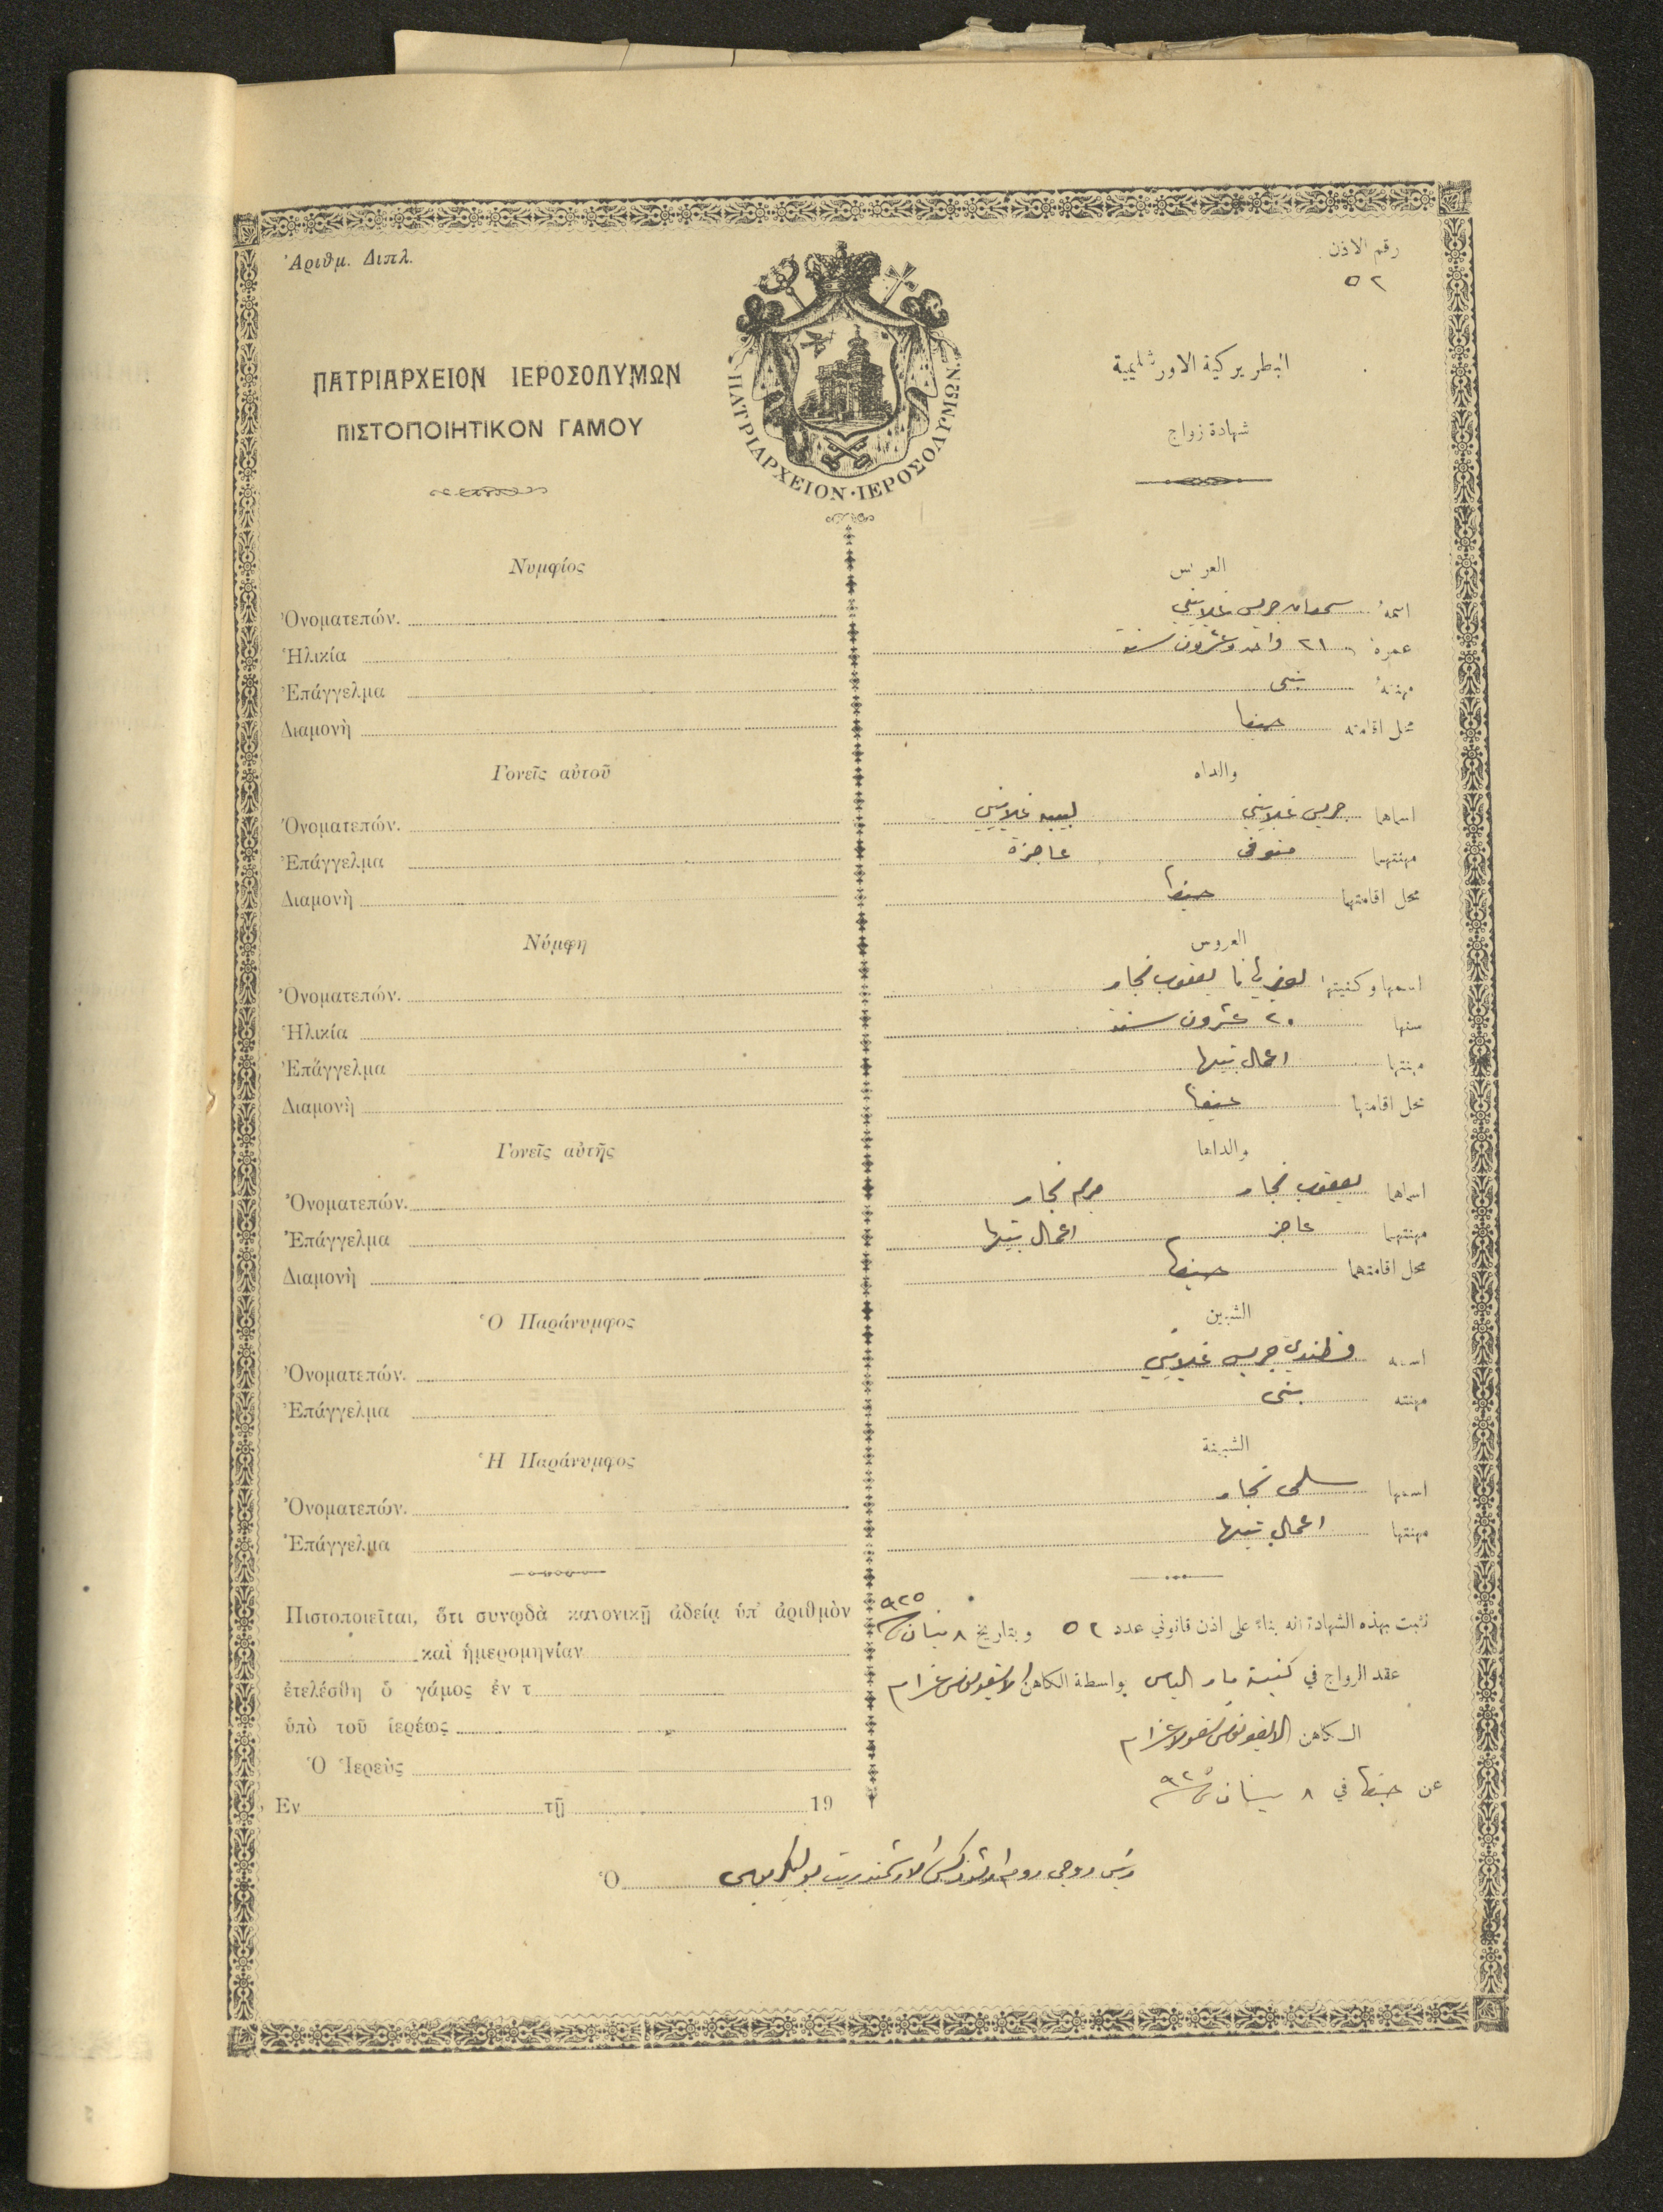 Ἀριθμ. Διπλ.
رقم الاذن
٥٢
ΠΑΤΡΙΑΡΧΕΙΟΝ ΙΕΡΟΣΟΛΥΜΩΝ
ΠΙΣΤΟΠΟΙΗΤΙΚΟΝ ΓΑΜΟΥ
ΠΑΤΡΙΑΡΧΕΙΟΝ · ΙΕΡΟΣΟΛΥΜΩΝ
البطريركية الاورشليمية
شهادة زواج
Νυμφίος
Ὀνοματεπών.
Ἡλικία
Ἐπάγγελμα
Διαμονὴ
Γονεῖς αὐτοῦ
Ὀνοματεπών.
Ἐπάγγελμα
Διαμονὴ
Νύμφη
Ὀνοματεπών.
Ἡλικία
Ἐπάγγελμα
Διαμονὴ
Γονεῖς αὐτῆς
Ὀνοματεπών.
Ἐπάγγελμα
Διαμονὴ
Ὁ Παράνυμφος
Ὀνοματεπών.
Ἐπάγγελμα
Ἡ Παράνυμφος
Ὀνοματεπών.
Ἐπάγγελμα
Πιστοποιεῖται, ὅτι συνῳδὰ κανονικῇ ἀδείᾳ ὑπ' ἀριθμὸν
καὶ ἡμερομηνίαν
ἐτελέσθη ὁ γάμος ἐν τ
ὑπὸ τοῦ ἱερέως
Ὁ Ἱερεὺς
Ἐν τῇ 19
العريس
اسمهُ سمعان جريس غلاييني
عمره ٢١ واحد وعشرون سنة
مهنتهُ
محل اقامته حيفا
والداه
اسماهما جريس غلاييني لبيبه غلاييني
مهنتهما متوفى عاجزة
محل اقامتهما حيفا
العروس
اسمها وكنيتها يعقوب نجار
سنها ٢٠ عشرون سنة
مهنتها اعمال بيتها
محل اقامتها حيفا
والداها
اسماهما يعقوب نجار مريم نجار
مهنتهما عاجز اعمال بيتها
محل اقامتهما حيفا
الشبين
اسمه قسطندي جريس غلاييني
مهنته
الشبينة
اسمها سلمى نجار
مهنتها اعمال بيتها
نثبت بهذه الشهادة انه بناءً على اذن قانوني عدد ٥٢ وبتاريخ ٨ نيسان ٩٢٥
عقد الزواج في كنيسة مار الياس بواسطة الكاهن
الكاهن
عن حيفا في ٨ نيسان
Ὁ رئيس روحي روم